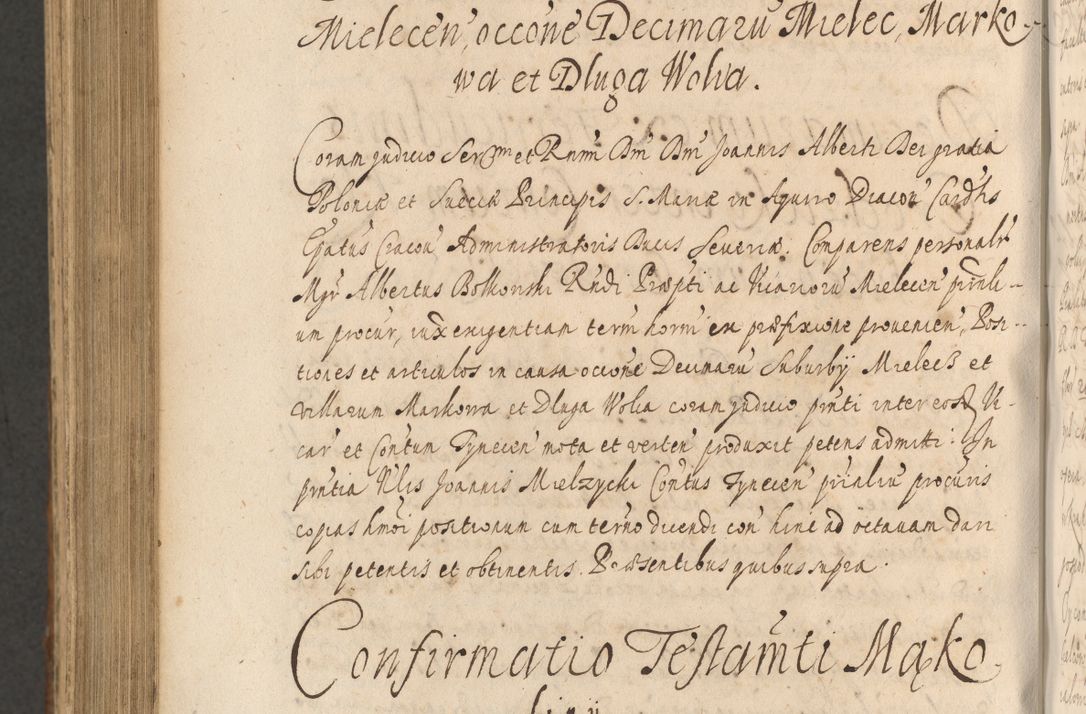 Mielecen, occone Decimaru Mielec, Marko-
wa et Dluga Wolia.
Coram judicio Serm et Rnmi Dni Dni Joannis Alberti Dei gratia
Poloniæ et Sueciæ Principis S. Mariæ in Aquiro Diacon Cardlis
Epatus Cracou Administratoris Ducis Severiæ. Comparens personalr
Mgr Albertus Bolkowski Rndi Præpti ac Vicarioru Mielecen prinli-
um procur, iuxexigentiam term horni ex præfixione provenien, Posi-
tiones et articulos in causa occone Decimaru Suburbij Mielec et
villarum Markowa et Dluga Wolia coram judicio pnti inter eosd Vi-
car et Contum Tynecen mota et verten produxit petens admitti. In
pntia Nlis Joannis Mielzycki Contus Tynecen prinliu procuris
copias hmoi positionum cum termo dicendi con hinc ad octavam dari
sibi petentis et obtinentis. Præsentibus quibus supra.
Confirmatio Testamti Mąko-